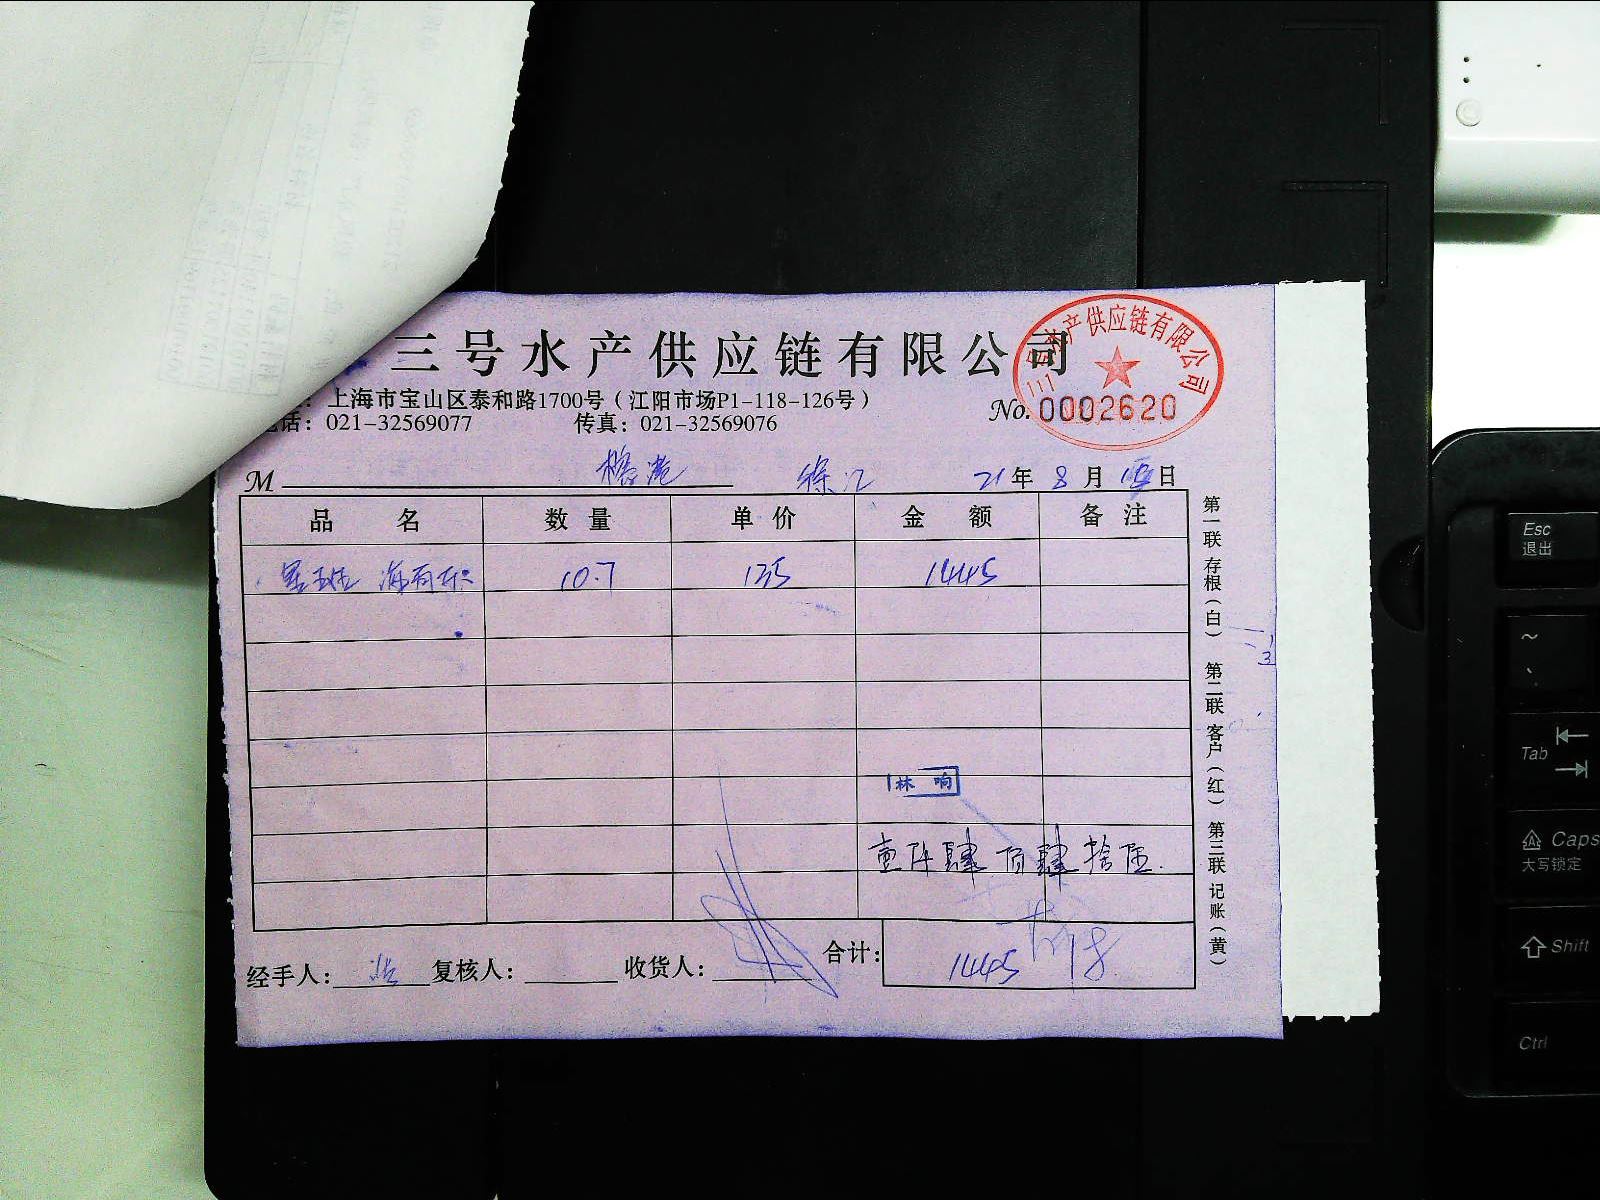 三号水产供应链有限公司
三号水产供应链有限公司
上海市宝山区泰和路1700号（江阳市场P1-118-126号）
电话：021-32569077 传真：021-32569076
No. 0002620
M 榕港 徐汇 21年 8月 日
品名 数量 单价 金额 备注
10.7 135 1445
林响
壹仟肆百肆拾伍.
合计： 1445
经手人： 复核人： 收货人：
第一联存根（白） 第二联客户（红） 第三联记账（黄）
Esc
退出
~
Tab
Caps
大写锁定
Shift
Ctrl